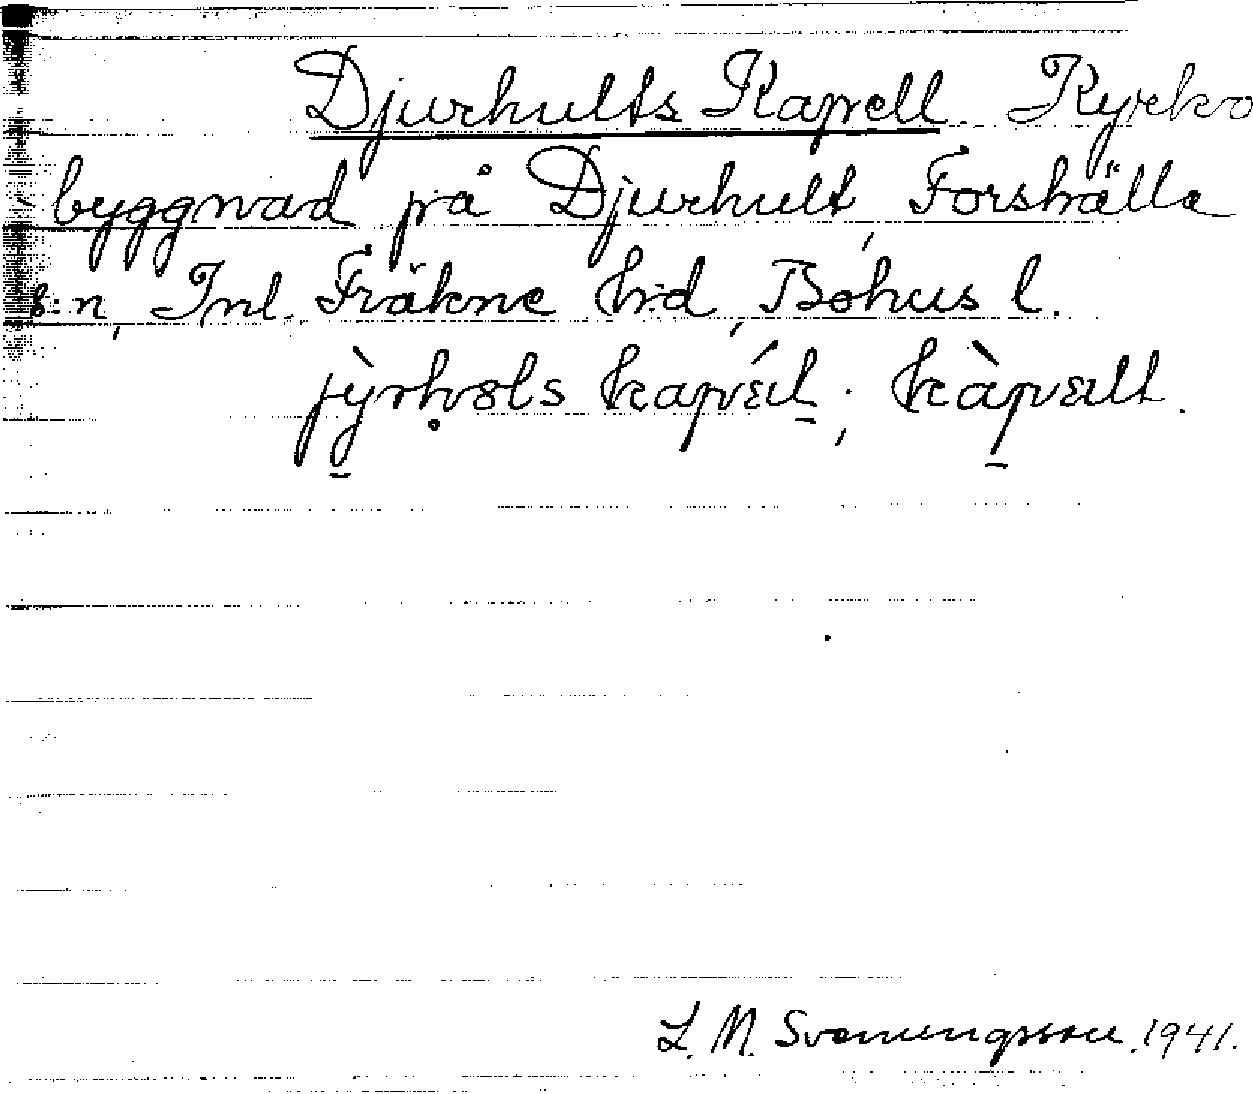 Djurhults Kapell. Kyrko
byggnad på Djurhult, Forshälla
s:n, Inl. Fräkne h:d, Bohus l.
jỳrhols kapɛ́l; kàpɛll.
L. M. Svenungsson. 1941.